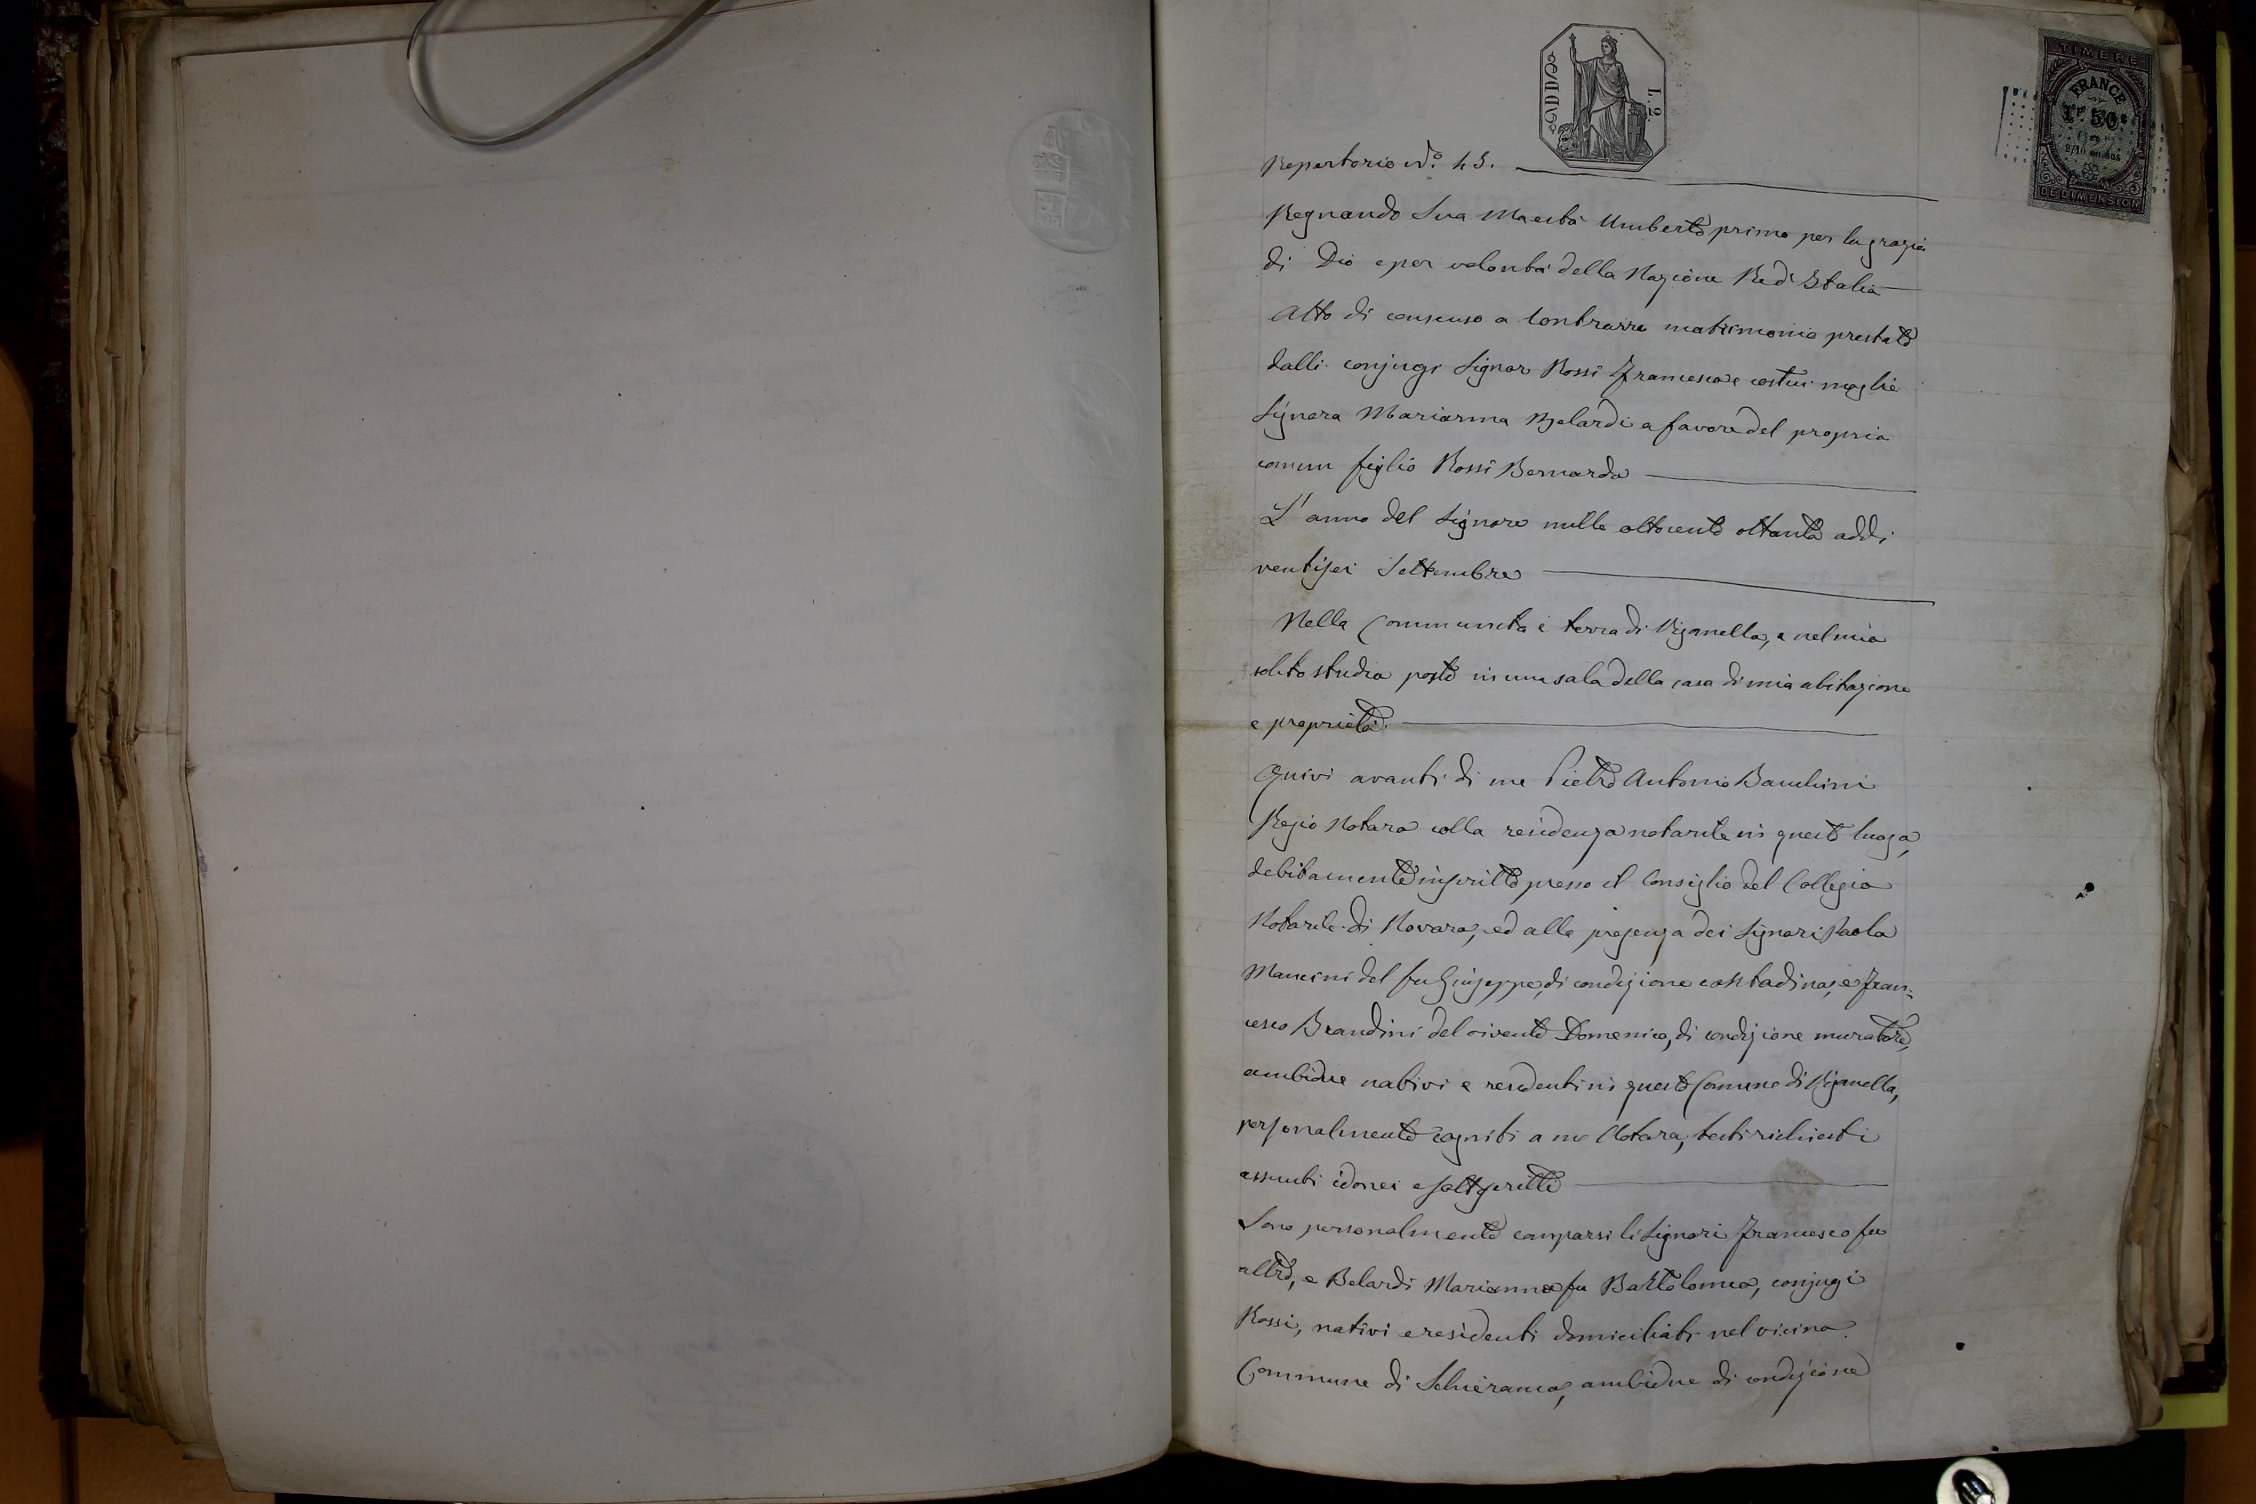 L. 2
TIMBRE
FRANCE
1F 50c
2/10 en sus
DE DIMENSION
Repertorio N.º 43.
Regnando Sua Maestà Umberto primo per la grazia
di Dio e per volontà della Nazione Re d'Italia
Atto di consenso a contrarre matrimonio prestato
dalli conjugi Signor Rossi Francesco e costui moglie
Signora Marianna Belardi a favore del proprio
comun figlio Rossi Bernardo
L'anno del Signore mille ottocento ottanta addi
ventisei Settembre
Nella Communità e terra di Viganella, e nel mio
solito studio posto in una sala della casa di mia abitazione
e proprietà.
Quivi avanti di me Pietro Antonio
Regio Notaro colla residenza notarile in questo luogo,
debitamente inscritto presso il Consiglio del Collegio
Notarile di Novara, ed alla presenza dei Signori Paolo
Mancini del fu Giuseppe, di condizione contadino, e Fran=
cesco Brandini del vivente Domenico, di condizione muratore,
ambidue nativi e residenti in questo Comune di Viganella,
personalmente cogniti a me Notaro, testi richiesti
assunti idonei e sottoscritti
Sono personalmente comparsi li Signori Francesco fu
altro, e Belardi Marianna fu Bartolomeo, conjugi
Rossi, nativi e residenti domiciliati nel vicino
Commune di Schieranco, ambidue di condizione